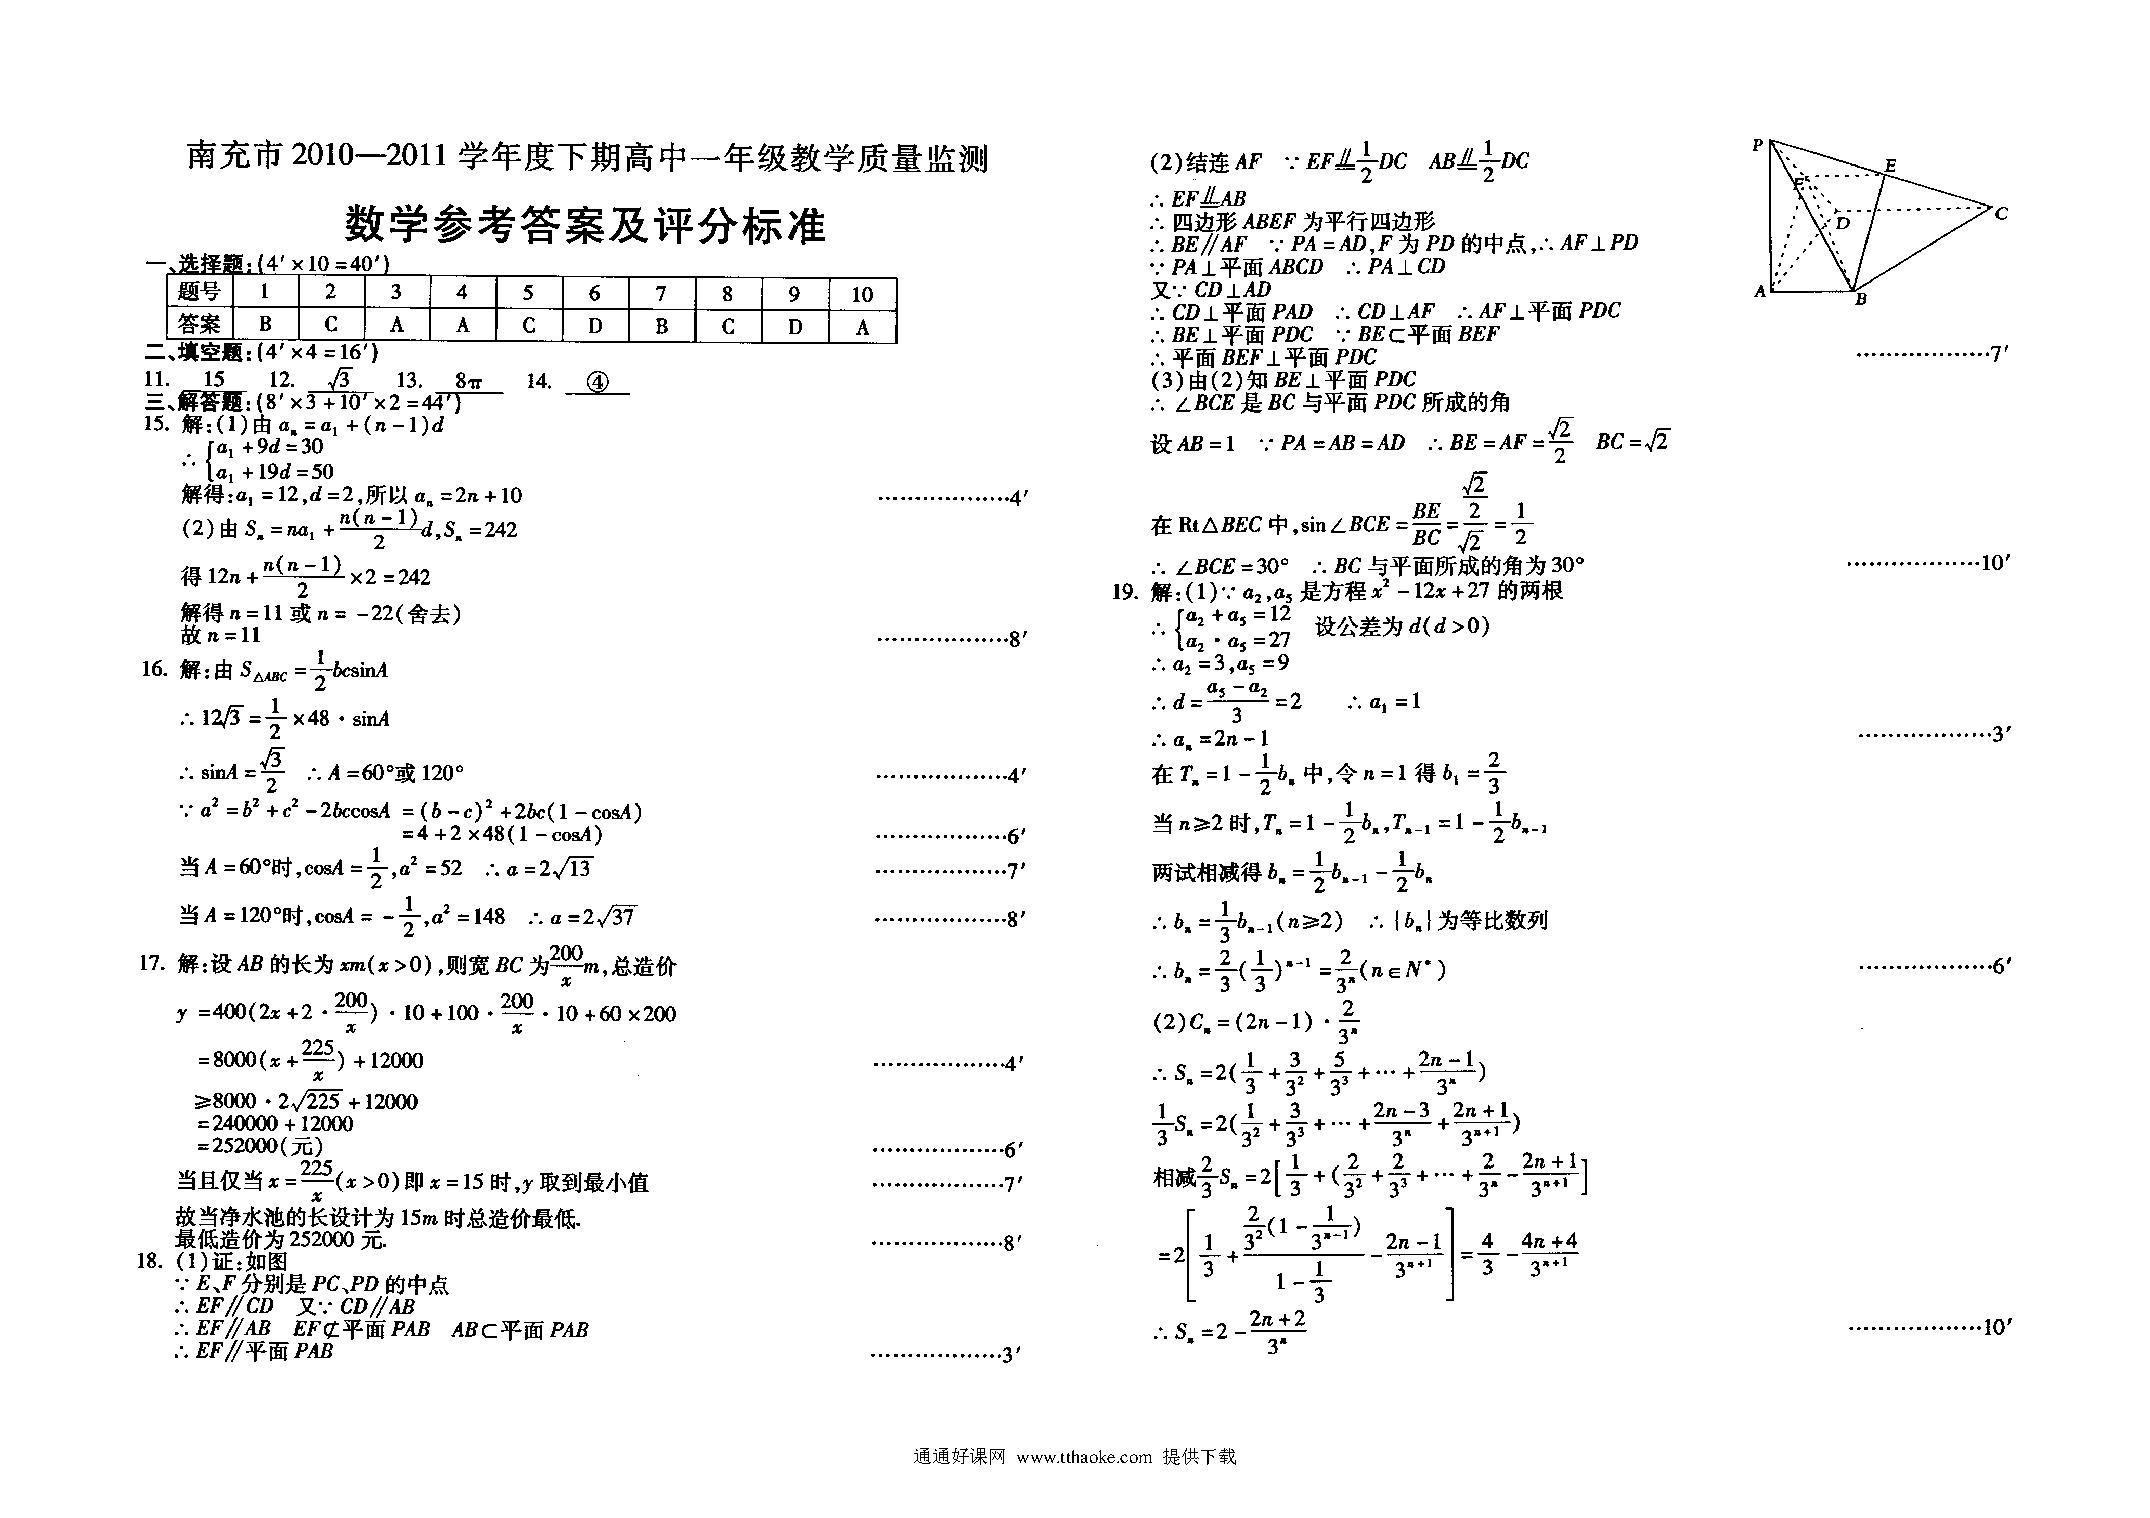 南充市 2010—2011 学年度下期高中一年级教学质量监测
数学参考答案及评分标准
一、选择题:(4′×10=40′)
题号 1 2 3 4 5 6 7 8 9 10
答案 B C A A C D B C D A
二、填空题:(4′×4=16′)
11. 15 12. √3 13. 8π 14. ④
三、解答题:(8′×3+10′×2=44′)
15. 解:(1)由 aₙ=a₁+(n-1)d
∴ {a₁+9d=30
a₁+19d=50
解得:a₁=12,d=2,所以 aₙ=2n+10 ………………4′
(2)由 Sₙ=na₁+n(n-1)/2 d,Sₙ=242
得 12n+n(n-1)/2×2=242
解得 n=11 或 n=-22(舍去)
故 n=11 ………………8′
16. 解:由 S△ABC=1/2 bcsinA
∴ 12√3=1/2×48·sinA
∴ sinA=√3/2 ∴ A=60°或 120° ………………4′
∵ a²=b²+c²-2bccosA =(b-c)²+2bc(1-cosA)
=4+2×48(1-cosA) ………………6′
当 A=60°时,cosA=1/2,a²=52 ∴ a=2√13 ………………7′
当 A=120°时,cosA=-1/2,a²=148 ∴ a=2√37 ………………8′
17. 解:设 AB 的长为 xm(x>0),则宽 BC 为200/x m,总造价
y =400(2x+2·200/x)·10+100·200/x·10+60×200
=8000(x+225/x)+12000 ………………4′
≥8000·2√225+12000
=240000+12000
=252000(元) ………………6′
当且仅当 x=225/x(x>0)即 x=15 时,y 取到最小值 ………………7′
故当净水池的长设计为 15m 时总造价最低.
最低造价为 252000 元. ………………8′
18. (1)证:如图
∵ E、F 分别是 PC、PD 的中点
∴ EF∥CD 又∵ CD∥AB
∴ EF∥AB EF⊄平面 PAB AB⊂平面 PAB
∴ EF∥平面 PAB ………………3′
(2)结连 AF ∵ EF⫫1/2 DC AB⫫1/2 DC
∴ EF⫫AB
∴ 四边形 ABEF 为平行四边形
∴ BE∥AF ∵ PA=AD,F 为 PD 的中点,∴ AF⊥PD
∵ PA⊥平面 ABCD ∴ PA⊥CD
又∵ CD⊥AD
∴ CD⊥平面 PAD ∴ CD⊥AF ∴ AF⊥平面 PDC
∴ BE⊥平面 PDC ∵ BE⊂平面 BEF
∴ 平面 BEF⊥平面 PDC ………………7′
(3)由(2)知 BE⊥平面 PDC
∴ ∠BCE 是 BC 与平面 PDC 所成的角
设 AB=1 ∵ PA=AB=AD ∴ BE=AF=√2/2 BC=√2
在 Rt△BEC 中,sin∠BCE=BE/BC=(√2/2)/√2=1/2
∴ ∠BCE=30° ∴ BC 与平面所成的角为 30° ………………10′
P
E
F
C
D
A
B
19. 解:(1)∵ a₂,a₅ 是方程 x²-12x+27 的两根
∴ {a₂+a₅=12
a₂·a₅=27 设公差为 d(d>0)
∴ a₂=3,a₅=9
∴ d=(a₅-a₂)/3=2 ∴ a₁=1
∴ aₙ=2n-1 ………………3′
在 Tₙ=1-1/2 bₙ 中,令 n=1 得 b₁=2/3
当 n≥2 时,Tₙ=1-1/2 bₙ,Tₙ₋₁=1-1/2 bₙ₋₁
两试相减得 bₙ=1/2 bₙ₋₁-1/2 bₙ
∴ bₙ=1/3 bₙ₋₁(n≥2) ∴ {bₙ}为等比数列
∴ bₙ=2/3(1/3)ⁿ⁻¹=2/3ⁿ(n∈N*) ………………6′
(2)Cₙ=(2n-1)·2/3ⁿ
∴ Sₙ=2(1/3+3/3²+5/3³+…+(2n-1)/3ⁿ)
1/3 Sₙ=2(1/3²+3/3³+…+(2n-3)/3ⁿ+(2n+1)/3ⁿ⁺¹)
相减2/3 Sₙ=2[1/3+(2/3²+2/3³+…+2/3ⁿ-(2n+1)/3ⁿ⁺¹]
=2[1/3+(2/3²(1-1/3ⁿ⁻¹))/(1-1/3)-(2n-1)/3ⁿ⁺¹]=4/3-(4n+4)/3ⁿ⁺¹
∴ Sₙ=2-(2n+2)/3ⁿ ………………10′
通通好课网 www.tthaoke.com 提供下载